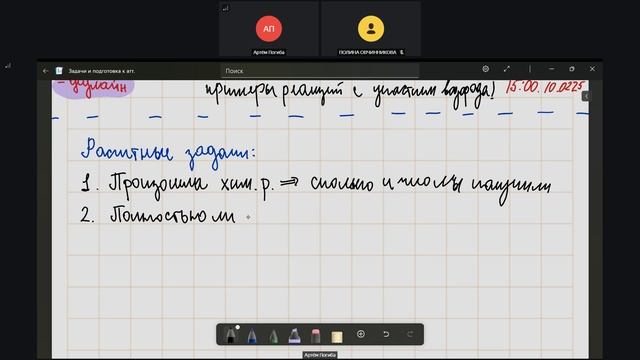 АП
Артём Погиба
ПОЛИНА ОВЧИННИКОВА
Задачи и подготовка к атт.
Поиск
- дедлайн
примеры реакций с участием водорода! 15:00. 10.02.25
Расчётные задачи:
1. Произошла хим. р. ⇒ сколько и чего мы получили
2. Полностью ли
Артём Погиба